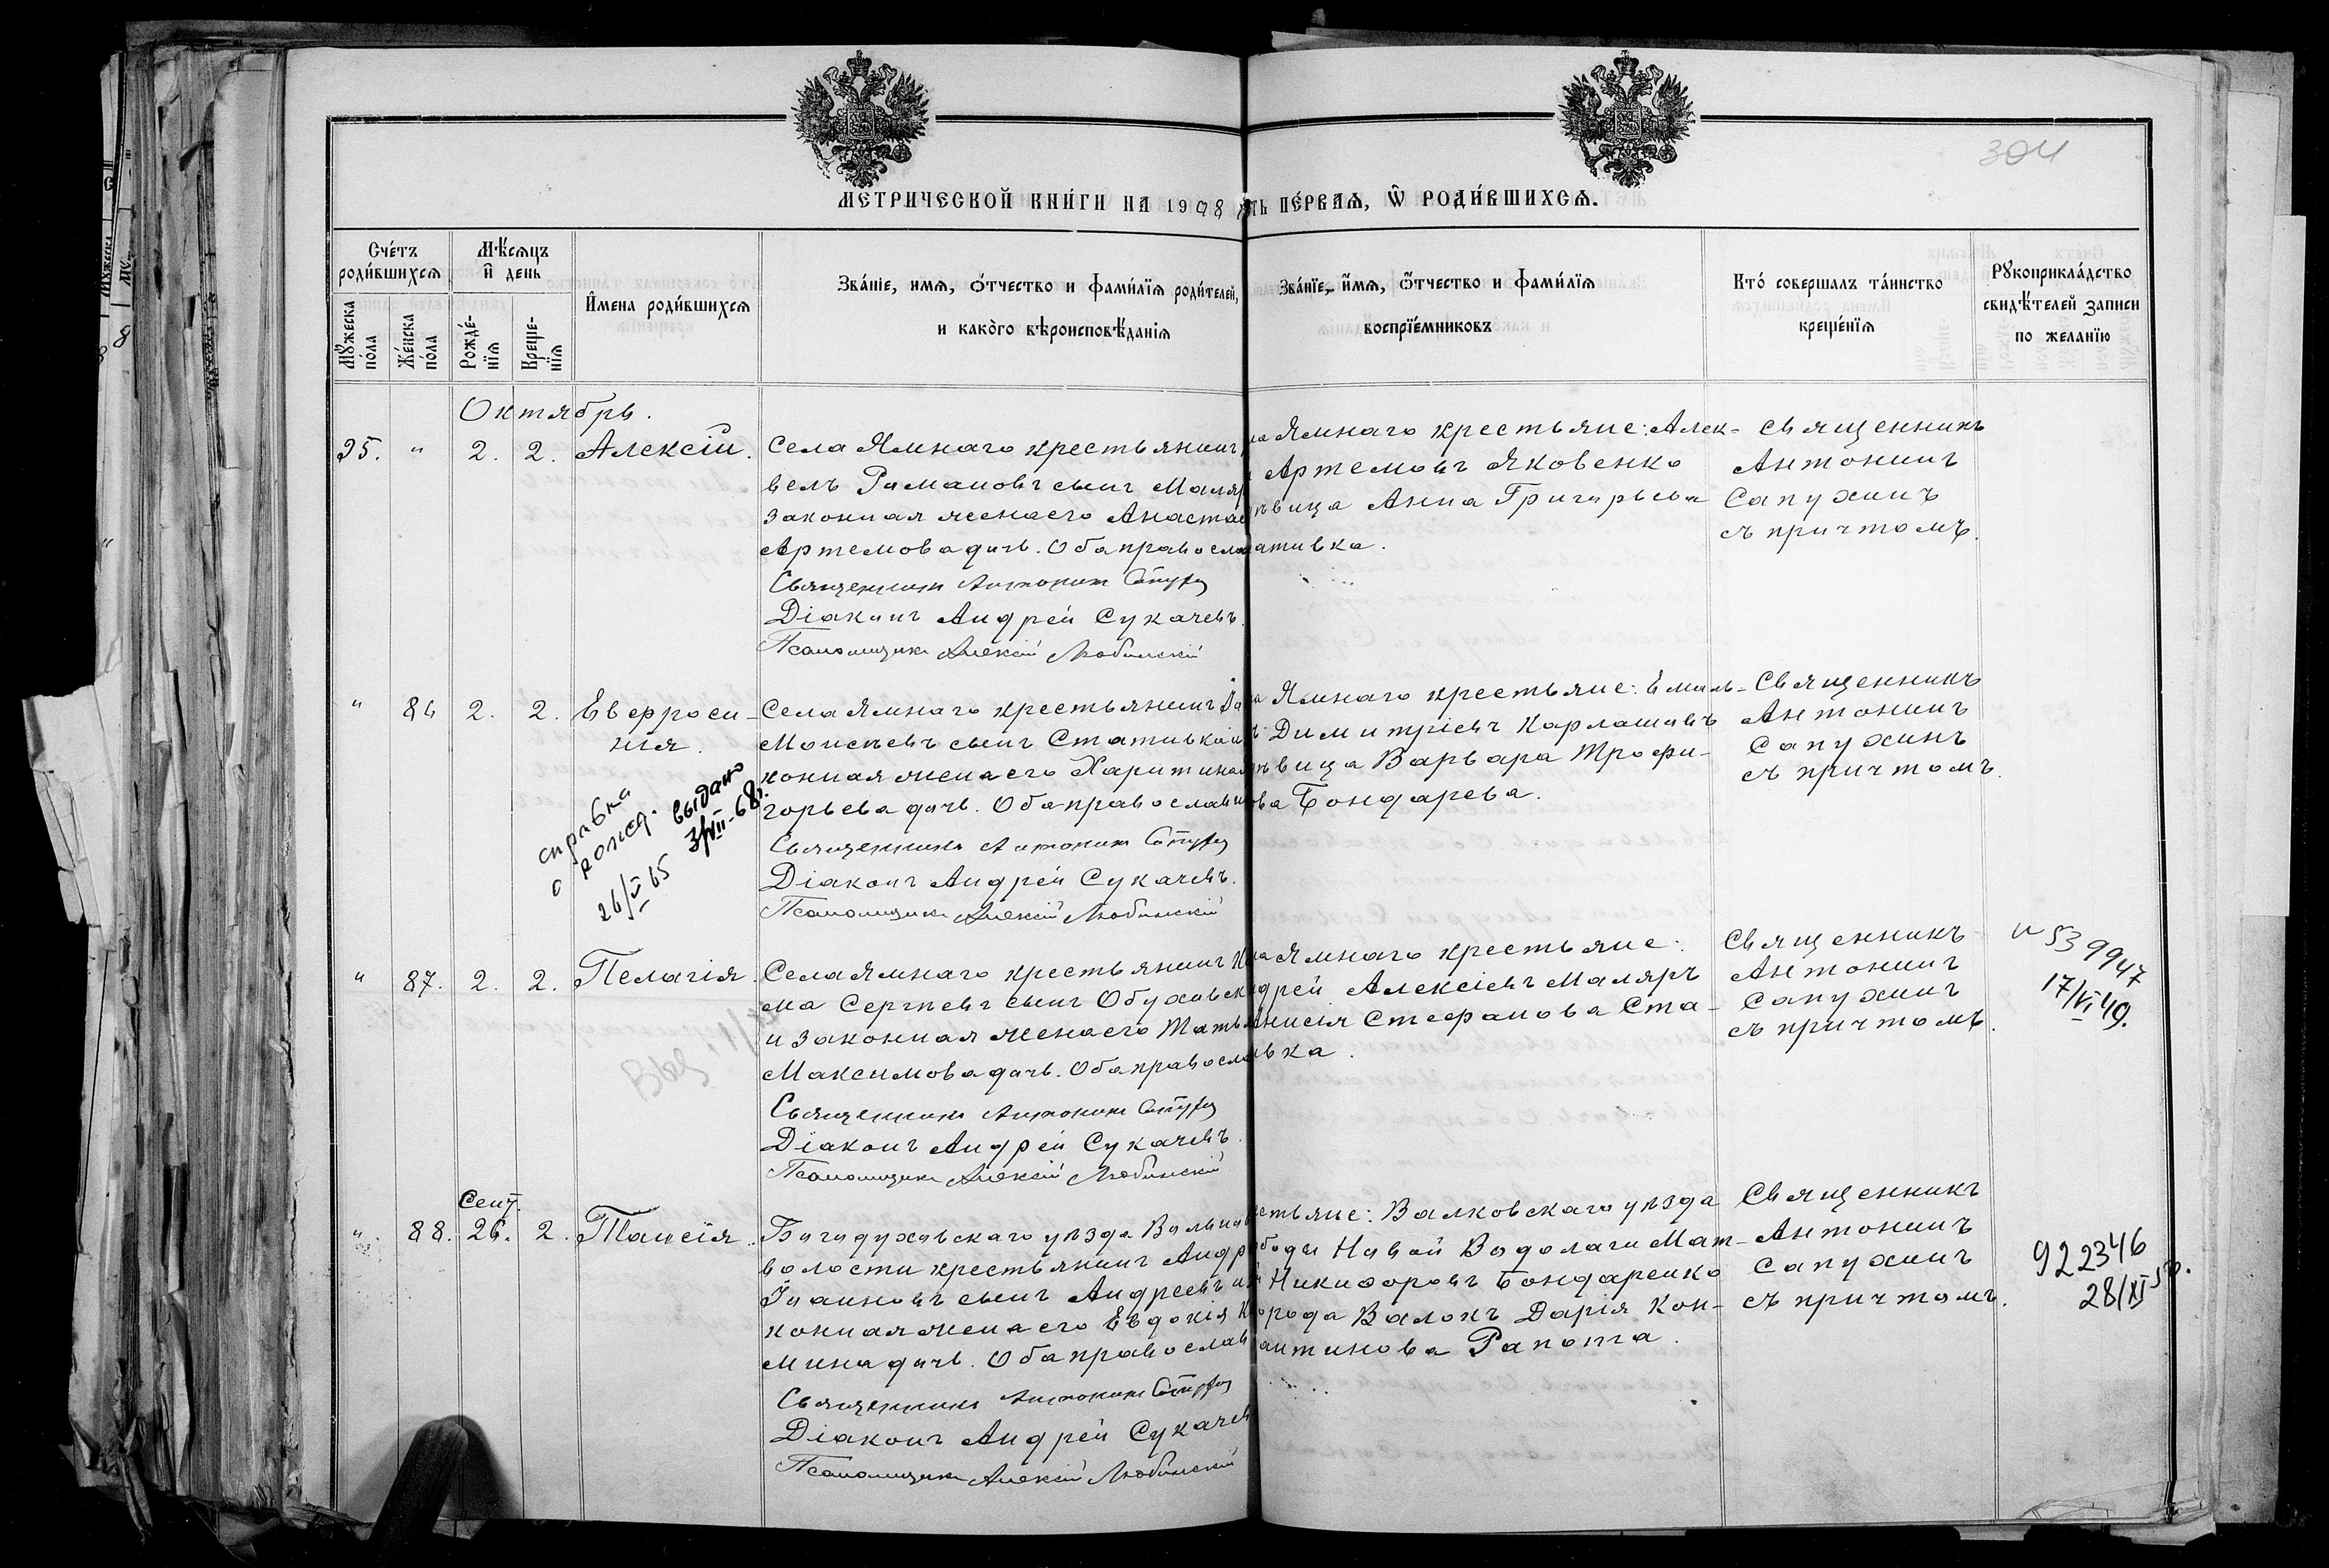 304
МЕТРИЧЕСКОЙ КНИГИ НА 1908
ПЕРВАЯ, Ѿ РОДИВШИХСЯ.
Счетъ родившихся
Мѣсяцъ и день
Мужеска пола
Женска пола
Рожденія
Крещенія
Имена родившихся
Званіе, имя, отчество и фамилія родителей,
и какого вѣроисповѣданія
Званіе, имя, отчество и фамилія
воспріемниковъ
Кто совершалъ таинство
крещенія
Рукоприкладство
свидѣтелей записи
по желанію
Октябрь.
95. " 2. 2. Алексій.
Села Ямнаго крестьянинъ
велъ Романовъ сынъ Маляр
законная жена его Анаста
Артемова дочь. Оба правосла
Священникъ Антонинъ
Діаконъ Андрей Сукачевъ.
Псаломщикъ Алексій Любинскій
Ямнаго крестьяне: Алек-
Артемовъ Яковенко
вица Анна Григорьева
ативка.
Священникъ
Антонинъ
Сапухинъ
съ причтомъ.
" 86 2. 2. Евфроси-
нія.
справка
о рожд. выдано
26/V 65 3/VII-68г.
Села Ямнаго крестьянинъ
Моисеевъ сынъ Стативка и
конная жена его Харитина
горьева дочь. Оба православн
Священникъ Антонинъ
Діаконъ Андрей Сукачевъ.
Псаломщикъ Алексій Любинскій
Ямнаго крестьяне: Емиль-
Димитріевъ Карлашевъ
вица Варвара Трофи-
ова Бондарева.
Священникъ
Антонинъ
Сапухинъ
съ причтомъ.
" 87. 2. 2. Пелагія.
Села Ямнаго крестьянинъ
ма Сергѣевъ сынъ Обуховск
и законная жена его Тать
Максимова дочь. Оба правосла
Священникъ Антонинъ
Діаконъ Андрей Сукачевъ.
Псаломщикъ Алексій Любинскій
Ямнаго крестьяне:
дрей Алексіевъ Маляръ
Анисія Стефанова Ста-
вка.
Священникъ
Антонинъ
Сапухинъ
съ причтомъ.
539947
17/VI 49.
Сент.
" 88. 26. 2. Таисія.
Богодуховскаго уѣзда Вольнов
волости крестьянинъ Андр
Іоанновъ сынъ Андреевъ и
конная жена его Евдокія К
мина дочь. Оба православ
Священникъ Антонинъ
Діаконъ Андрей Сукачев
Псаломщикъ Алексій Любинскій
стьяне: Валковскаго уѣзда
боды Новой Водолаги Мат-
Никифоровъ Бондаренко
рода Валокъ Дарія Кон-
антинова Рапота.
Священникъ
Антонинъ
Сапухинъ
съ причтомъ.
922346
28/XI